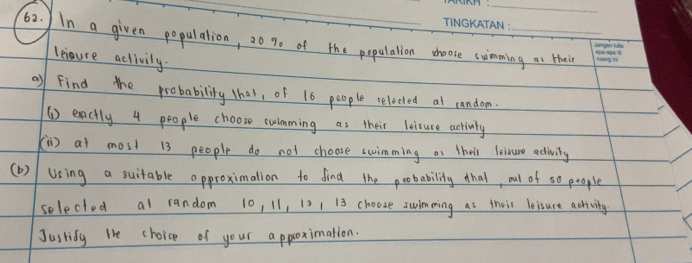 TARIKH :
TINGKATAN :
Jangan tulis
apa-apa di
ruang ini
62. In a given population, 20% of the population choose swimming as their
leisure activity.
a) Find the probability that, of 16 people selected at random.
(i) exactly 4 people choose swimming as their leisure activity
(ii) at most 13 people do not choose swimming as their leisure activity
(b) Using a suitable approximation to find the probability that, out of 50 people
selected at random 10, 11, 12, 13 choose swimming as their leisure activity.
Justify the choice of your approximation.